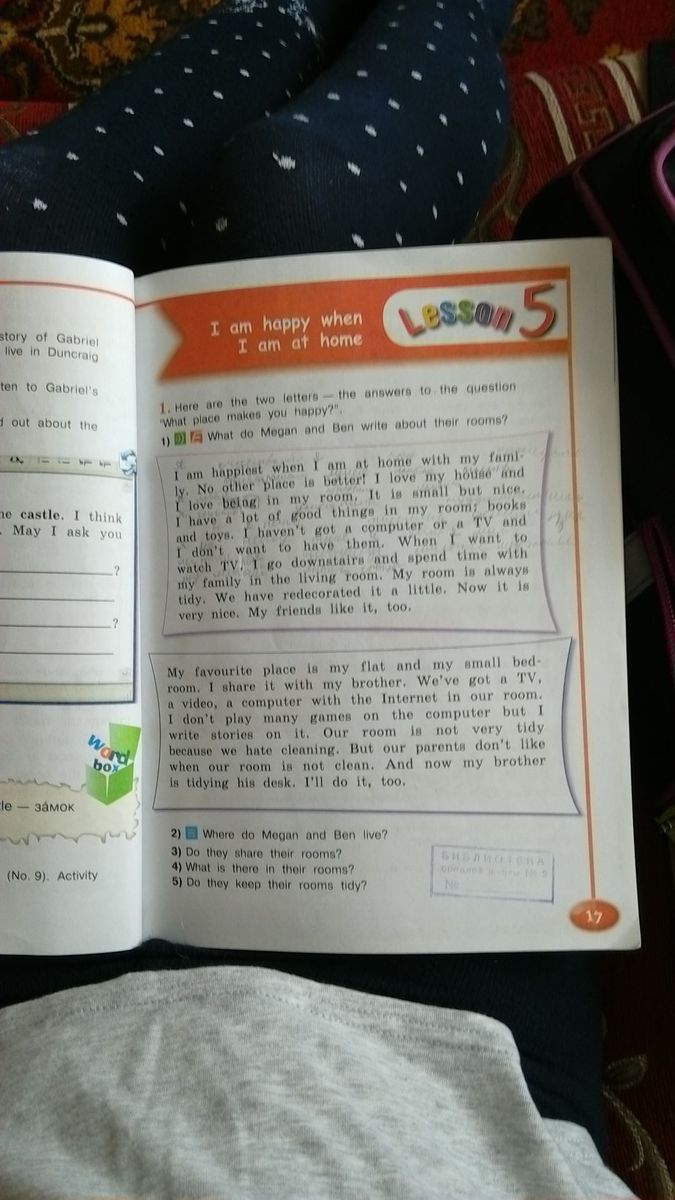 story of Gabriel
live in Duncraig
ten to Gabriel's
d out about the
ne castle. I think
. May I ask you
?
?
word
box
tle — за́мок
(No. 9). Activity
I am happy when
I am at home
Lesson 5
1. Here are the two letters — the answers to the question
"What place makes you happy?".
1) What do Megan and Ben write about their rooms?
I am happiest when I am at home with my fami-
ly. No other place is better! I love my house and
I love being in my room. It is small but nice.
I have a lot of good things in my room: books
and toys. I haven't got a computer or a TV and
I don't want to have them. When I want to
watch TV, I go downstairs and spend time with
my family in the living room. My room is always
tidy. We have redecorated it a little. Now it is
very nice. My friends like it, too.
My favourite place is my flat and my small bed-
room. I share it with my brother. We've got a TV,
a video, a computer with the Internet in our room.
I don't play many games on the computer but I
write stories on it. Our room is not very tidy
because we hate cleaning. But our parents don't like
when our room is not clean. And now my brother
is tidying his desk. I'll do it, too.
2) Where do Megan and Ben live?
3) Do they share their rooms?
4) What is there in their rooms?
5) Do they keep their rooms tidy?
БИБЛИОТЕКА
№
17